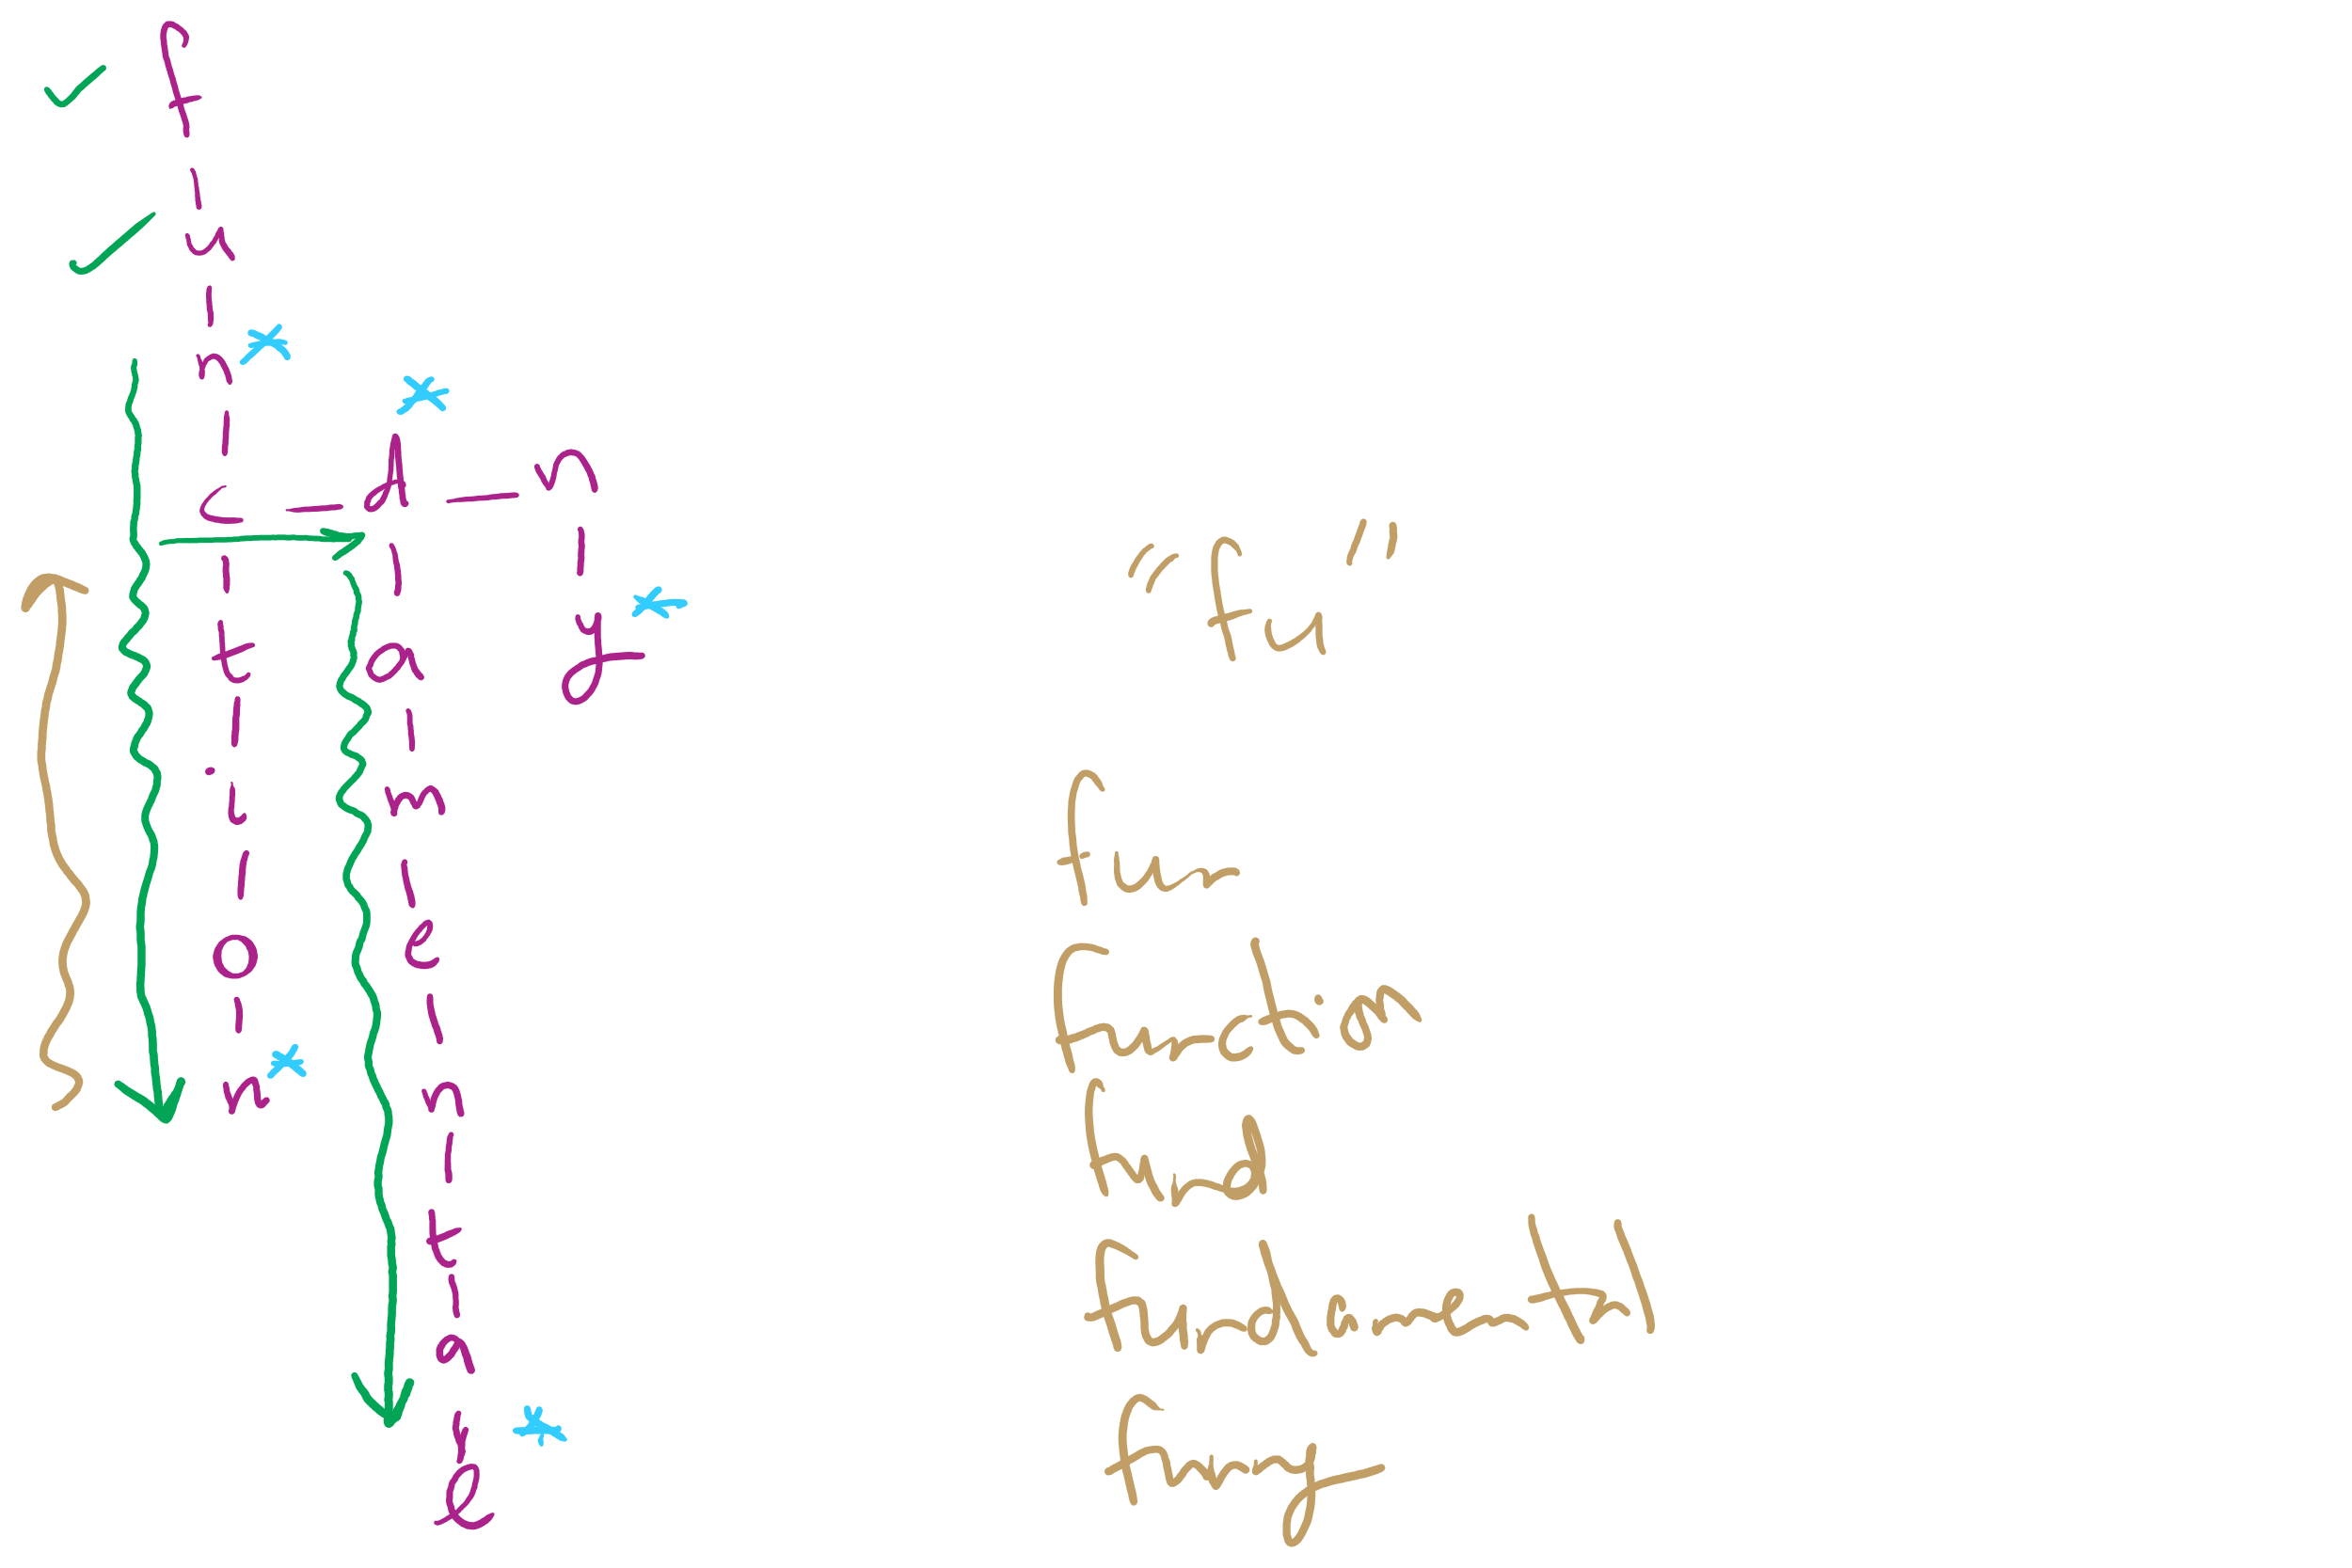 f
u
n
c d n
t a y
i m
o e
n n
t
a
l
"fu"
fun
function
fund
fundamental
funny